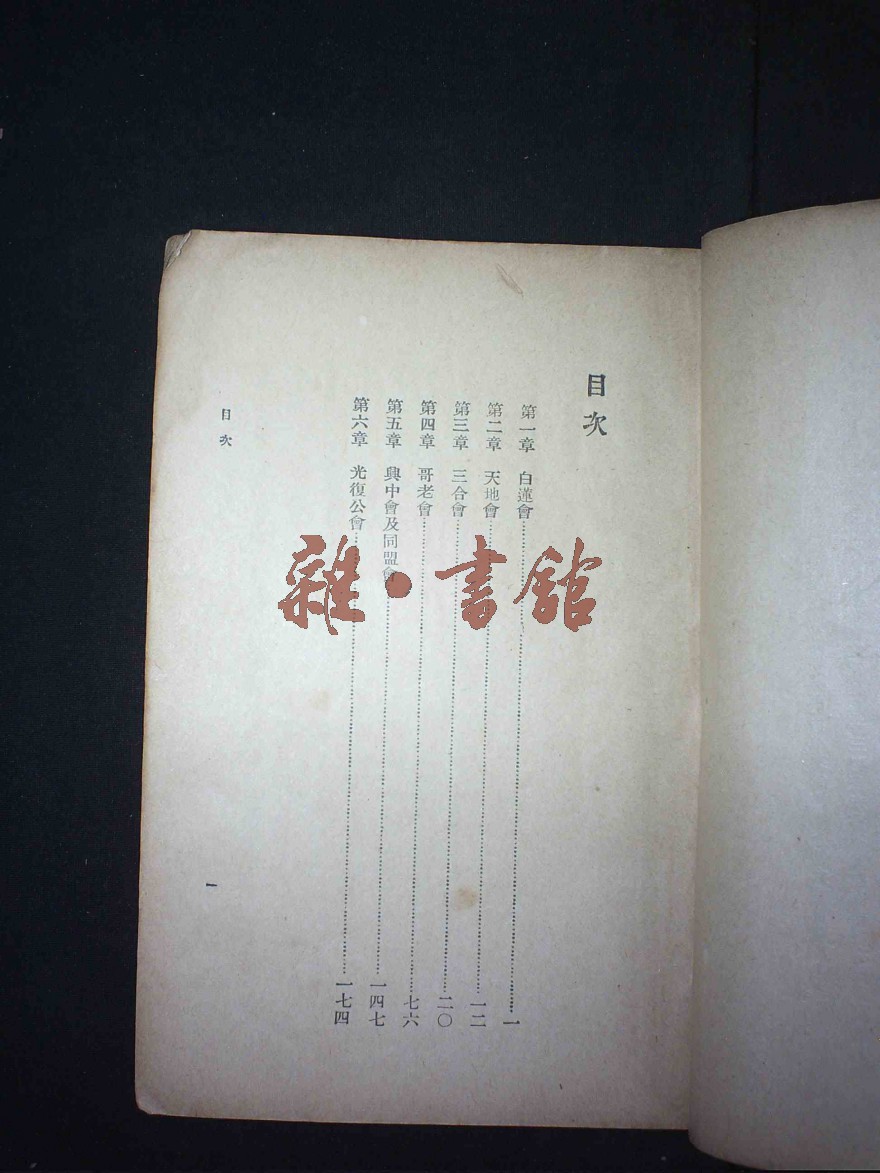 目次
第一章 白蓮會……一
第二章 天地會……一二
第三章 三合會……二〇
第四章 哥老會……七六
第五章 興中會及同盟會……一四七
第六章 光復公會……一七四
目次
一
雜·書館